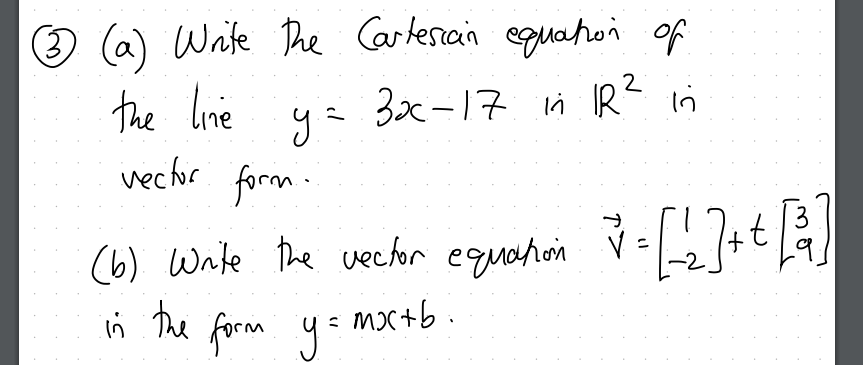 ③ (a) Write the Cartesian equation of
the line y = 3x-17 in ℝ² in
vector form.
(b) Write the vector equation v⃗ = [1 -2] + t [3 9]
in the form y = mx+b.